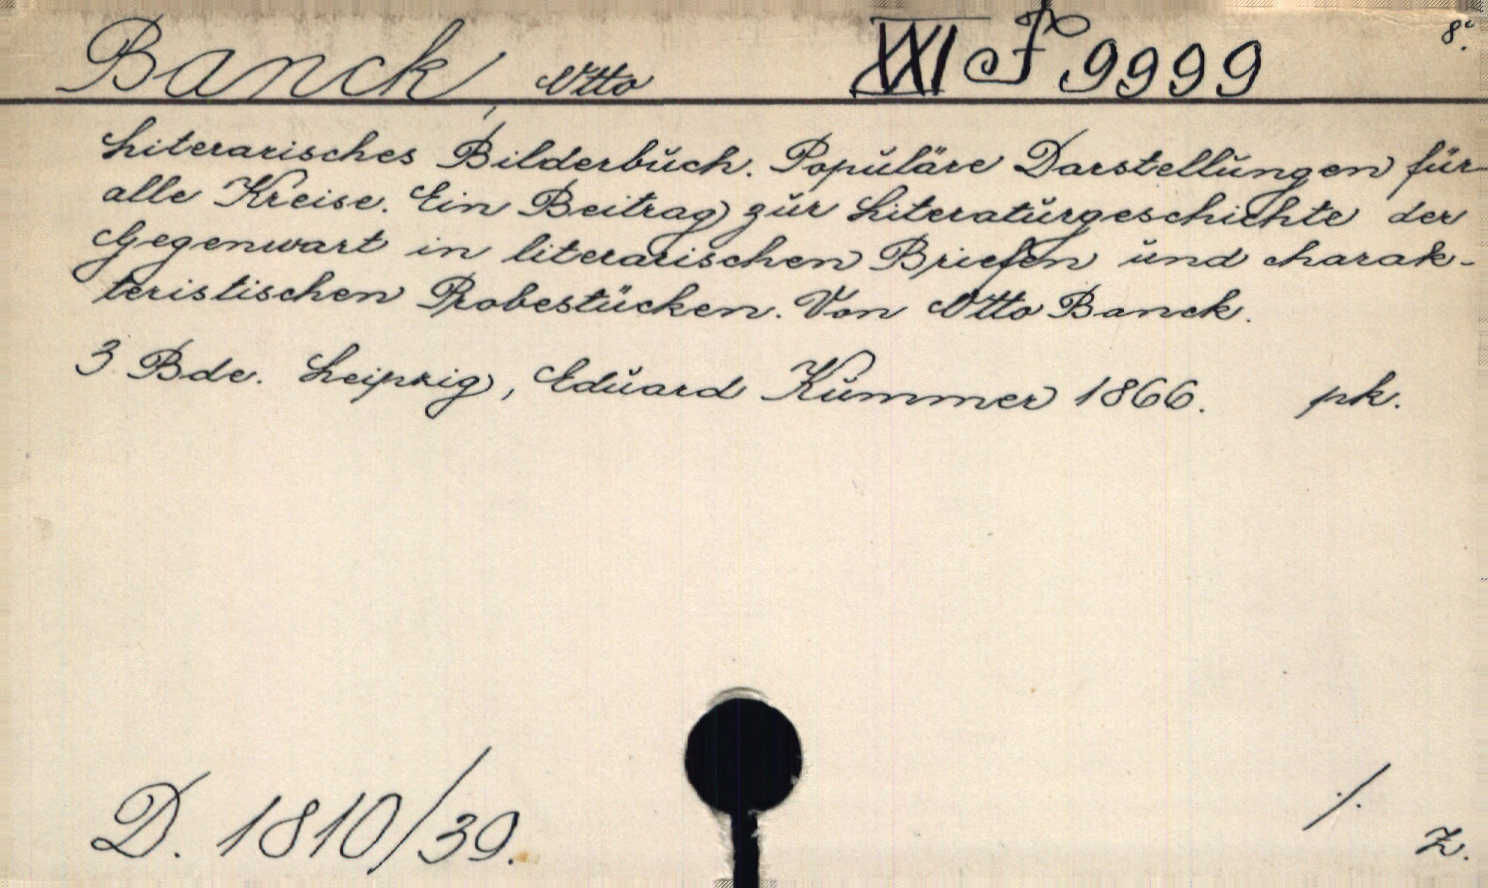 Banck, Otto XXI J 9999 8°.
Literarisches Bilderbuch. Populäre Darstellungen für
alle Kreise. Ein Beitrag zur Literaturgeschichte der
Gegenwart in literarischen Briefen und charak-
teristischen Probestücken. Von Otto Banck.
3 Bde. Leipzig, Eduard Kummer 1866. pk.
D. 1810/39. ./.
Z.